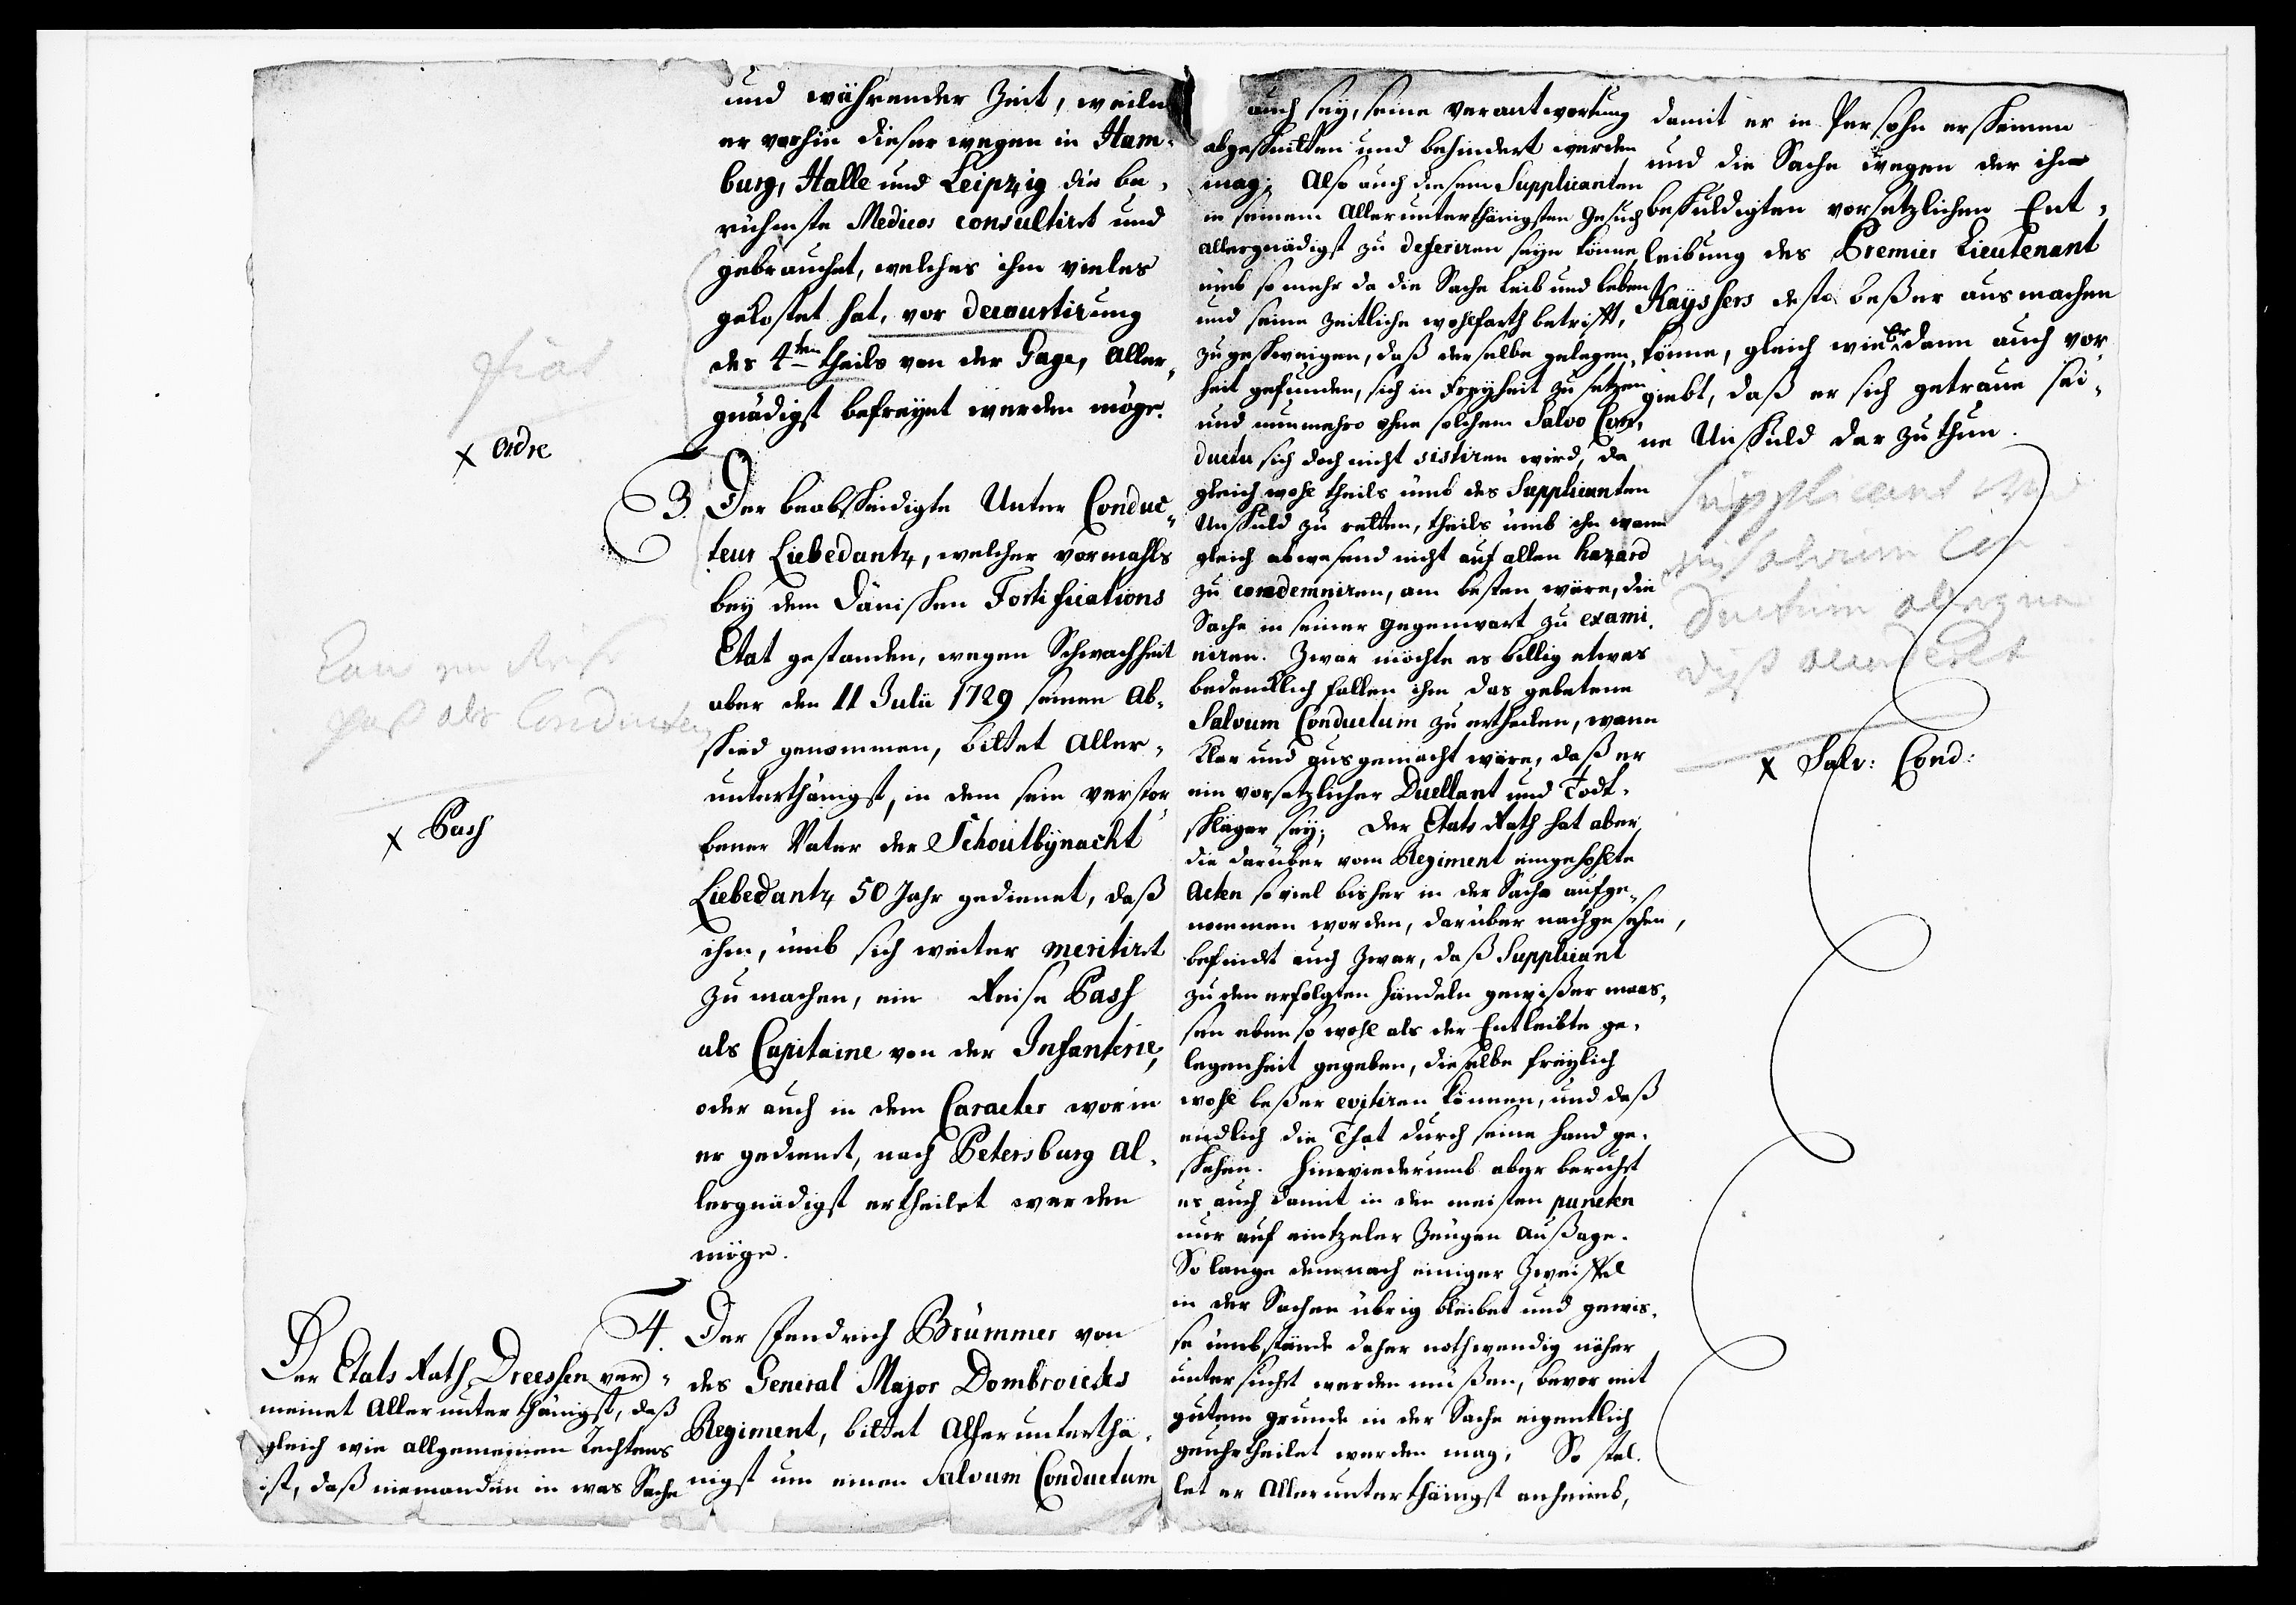 und währender Zeit, weiln
er vorhin dieser wegen in Ham-
burg, Halle und Leipzig die be-
rühmste Medicos consultirt und
gebrauchet, welches ihm vieles
gekostet hat, vor decourtirung
des 4ten theils von der Gage, Aller-
gnädigst befreyet werden möge.
fiat
x ordre
3. Der beabscheidigte Unter Conduc-
teur Liebedantz, welcher vormahls
bey dem Dänischen Fortifications
Etat gestanden, wegen Schwachheit
aber den 11 Julii 1729 seinen Ab-
schied genommen, bittet Aller-
unterthänigst, in dem sein verstor-
bener Vater der Schoutbynacht
Liebedantz 50 Jahr gedienet, daß
ihm, umb sich weiter meritirt
zu machen, ein Reise Pass
als Capitaine von der Infanterie,
oder auch in dem Caracter worin
er gedienet, nach Petersburg Al-
lergnädigst ertheilet werden
möge.
Kan ein Reise
Paß als Conducteur
x Pass
4. Der Fendrich Brümmer von
des General Major Dombroicks
Regiment, bittet Allerunterthä-
nigst um einen Salvum Conductum
Der Etats Rath Dreessen ver-
meinet Allerunterthänigst, daß
gleich wie allgemeinen Rechtens
ist, daß niemanden in was Sache
auch sey, seine verantwortung
abgeschnitten und behindert werden
mag; Also auch diesem Supplicanten
in seinem Allerunterthänigsten Gesuch
Allergnädigst zu deferiren seyn könne,
umb so mehr da die Sache Leib und Leben
und seine zeitliche wohlfarth betrifft,
zu geschweigen, daß derselbe gelegen-
heit gefunden, sich in Freyheit zu setzen
und nunmehro ohne solchem Salvo Con-
ductu sich doch nicht sistiren wird, da
gleich wohl theils umb des Supplicanten
Unschuld zu retten, theils umb ihn wann
gleich abwesend nicht auf allen hazard
zu condemniren, am besten wäre, die
Sache in seiner gegenwart zu exami-
niren. Zwar möchte es billig etwas
bedencklich fallen ihm das gebetene
Salvum Conductum zu ertheilen, wann
klar und ausgemacht wäre, daß er
ein vorsetzlicher Duellant und Todt-
schläger sey; Der Etats Rath hat aber
die darüber vom Regiment eingehohlte
Acten so viel bisher in der Sache aufge-
nommen worden, darüber nachgesehen,
befindet auch zwar, daß Supplicant
zu den erfolgten händeln gewißer maas-
sen eben so wohl als der Entleibte ge-
legenheit gegeben, dieselbe freylich
wohl beßer evitiren können, und daß
endlich die That durch seine hand ge-
schehen. Hinwiederumb aber beruhet
es auch damit in den meisten puncten
nur auf eintzeler Zeugen Außage.
So lange demnach einiger Zweiffel
in der Sachen übrig bleibet und gewis-
se umbstände daher nothwendig näher
untersuchet werden müßen, bevor mit
gutem grunde in der Sache eigentlich
geurtheilet werden mag; So stel-
let er Allerunterthänigst anheimb,
damit er in Persohn erscheinen
und die Sache wegen der ihm
beschuldigten vorsetzlichen Ent-
leibung des Premier Lieutenant
Kayssers desto beßer ausmachen
könne, gleich wie Er dann auch vor-
giebt, daß er sich getraue sei-
ne Unschuld dar zu thun.
Supplicant wird
ein Salvum Con
ductum allergnä
digst
x Salv: Cond: